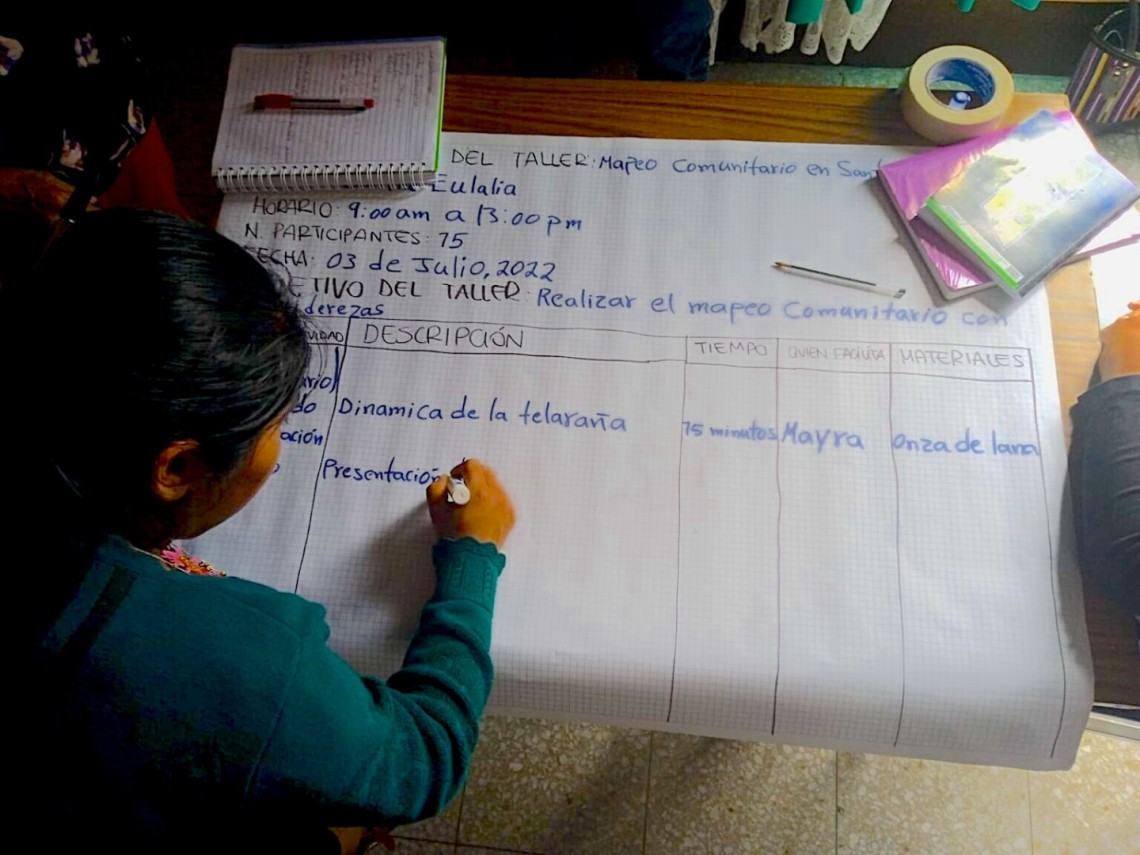 DEL TALLER: Mapeo Comunitario en San
Eulalia
HORARIO: 9:00 am a 13:00 pm
N. PARTICIPANTES: 15
ECHA: 03 de Julio, 2022
ETIVO DEL TALLER: Realizar el mapeo Comunitario con
derezas
VIDAD DESCRIPCIÓN TIEMPO QUIEN FACILITA MATERIALES
ario)
do Dinamica de la telaraña 15 minutos Mayra Onza de lana
ación
Presentación